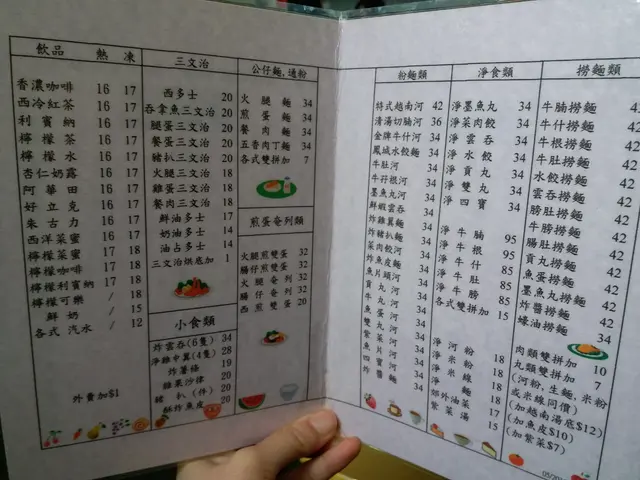 飲品 熱 凍
香濃咖啡 16 17
西冷紅茶 16 17
利賓納 16 17
檸檬茶 16 17
檸檬水 16 17
杏仁奶露 16 17
阿華田 16 17
好立克 16 17
朱古力 16 17
西洋菜蜜 16 17
檸檬菜蜜 17 18
檸檬咖啡 17 18
檸檬利賓納 17 18
檸檬可樂 / 18
鮮奶 / 15
各式汽水 / 12
外賣加$1
三文治
西多士 20
吞拿魚三文治 20
腿蛋三文治 20
餐蛋三文治 20
豬扒三文治 20
火腿三文治 18
雞蛋三文治 18
餐肉三文治 18
鮮油多士 17
奶油多士 14
油占多士 14
三文治烘底加 1
小食類
炸雲吞(6隻) 34
淨雞中翼(4隻) 28
炸薯條 19
蘋果沙律 20
豬扒(件) 20
酥炸魚皮 20
公仔麵,通粉
火腿麵 34
煎蛋麵 34
餐肉麵 34
五香肉丁麵 34
各式雙拼加 7
煎蛋奄列類
火腿煎雙蛋 32
腸仔煎雙蛋 32
火腿奄列 32
腸仔奄列 32
西煎雙蛋 20
粉麵類
特式越南河 42
清湯切腩河 36
金牌牛什河 34
鳳城水餃麵 34
牛肚河 34
牛孖根河 34
墨魚丸河 34
鮮蝦雲吞 34
炸雞翼麵 34
炸豬扒麵 34
菜肉餃河 34
炸魚皮麵 34
魚片頭河 34
貢丸河 34
牛丸河 34
魚蛋河 34
雙丸河 34
紫菜河 34
魚片河 34
四寶河 34
炸醬麵 34
淨食類
淨墨魚丸 34
淨菜肉餃 36
淨雲吞 34
淨水餃 34
淨貢丸 34
淨雙丸 34
淨四寶 34
淨牛腩 95
淨牛根 95
淨牛什 85
淨牛肚 85
淨牛膀 85
各式雙拼加 15
淨河粉 18
淨米粉 18
淨米線 18
淨麵 18
郊外油菜 17
紫菜湯 15
撈麵類
牛腩撈麵 42
牛什撈麵 42
牛根撈麵 42
牛肚撈麵 42
水餃撈麵 42
雲吞撈麵 42
膀肚撈麵 42
腸肚撈麵 42
貢丸撈麵 42
魚蛋撈麵 42
墨魚丸撈麵 42
炸醬撈麵 42
蠔油撈麵 34
肉類雙拼加 10
丸類雙拼加 7
(河粉,生麵,米粉
或米線同價)
(加越南湯底$12)
(加魚皮$10)
(加紫菜$7)